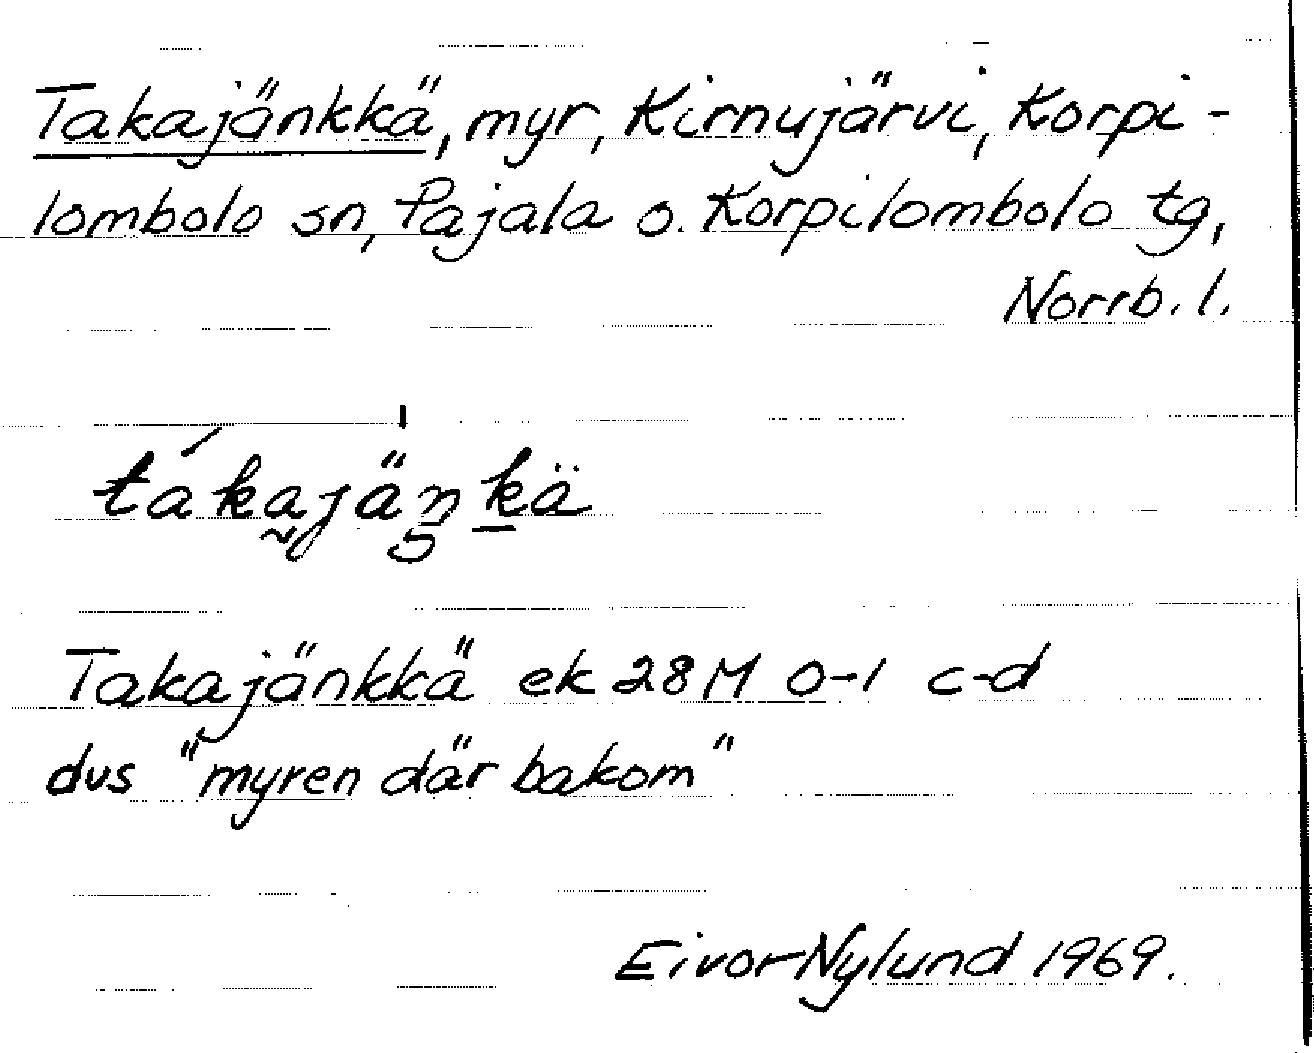 Takajänkkä, myr, Kirnujärvi, Korpi-
lombolo sn, Pajala o. Korpilombolo tg,
Norrb. l.
tákajäŋkä
Takajänkkä ek 28 M 0-1 c-d
dvs "myren där bakom"
Eivor Nylund 1969.